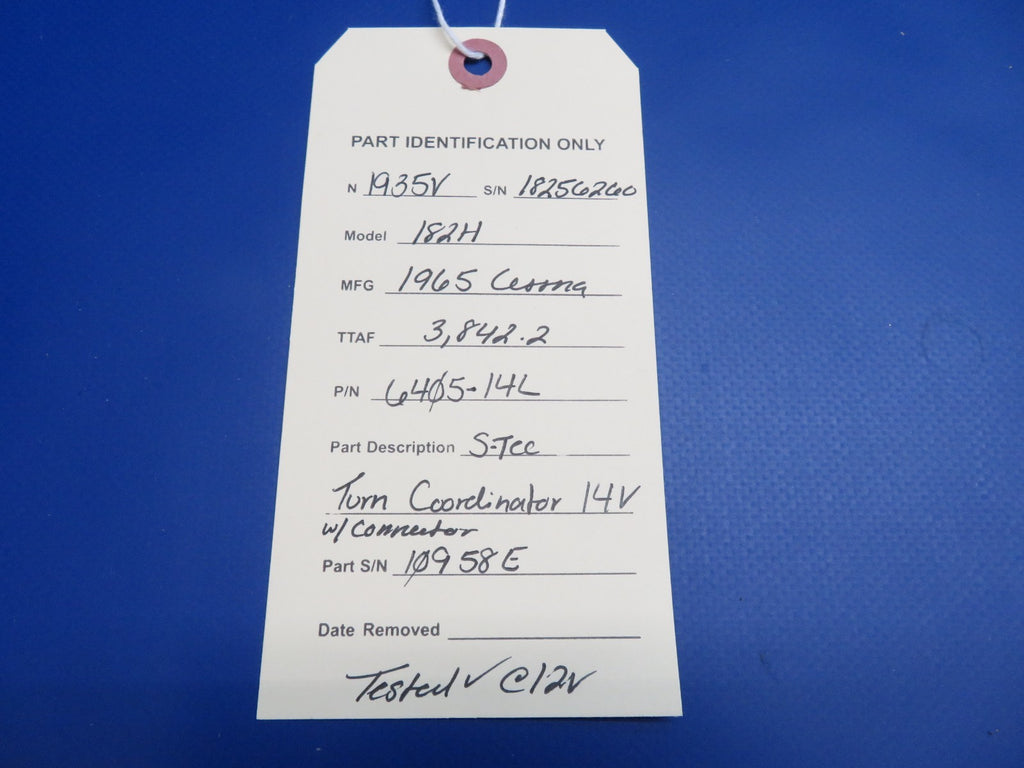 PART IDENTIFICATION ONLY
N 1935V S/N 18256260
Model 182H
MFG 1965 Cessna
TTAF 3,842.2
P/N 6405-14L
Part Description S-Tec
Turn Coordinator 14V
w/ Connector
Part S/N 10958E
Date Removed
Tested ✓ @12V